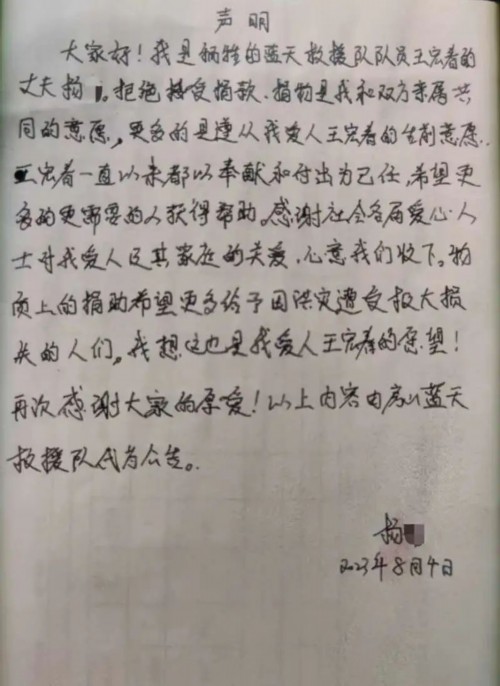 声明
大家好！我是牺牲的蓝天救援队队员王宏春的
丈夫杨。拒绝接受捐款、捐物是我和双方亲属共
同的意愿，更多的是遵从我爱人王宏春的生前意愿。
王宏春一直以来都以奉献和付出为己任，希望更
多的更需要的人获得帮助。感谢社会各届爱心人
士对我爱人及其家庭的关爱，心意我们收下。物
质上的捐助希望更多给予因洪灾遭受较大损
失的人们。我想这也是我爱人王宏春的愿望！
再次感谢大家的厚爱！以上内容由房山蓝天
救援队代为公告。
杨
2023年8月4日